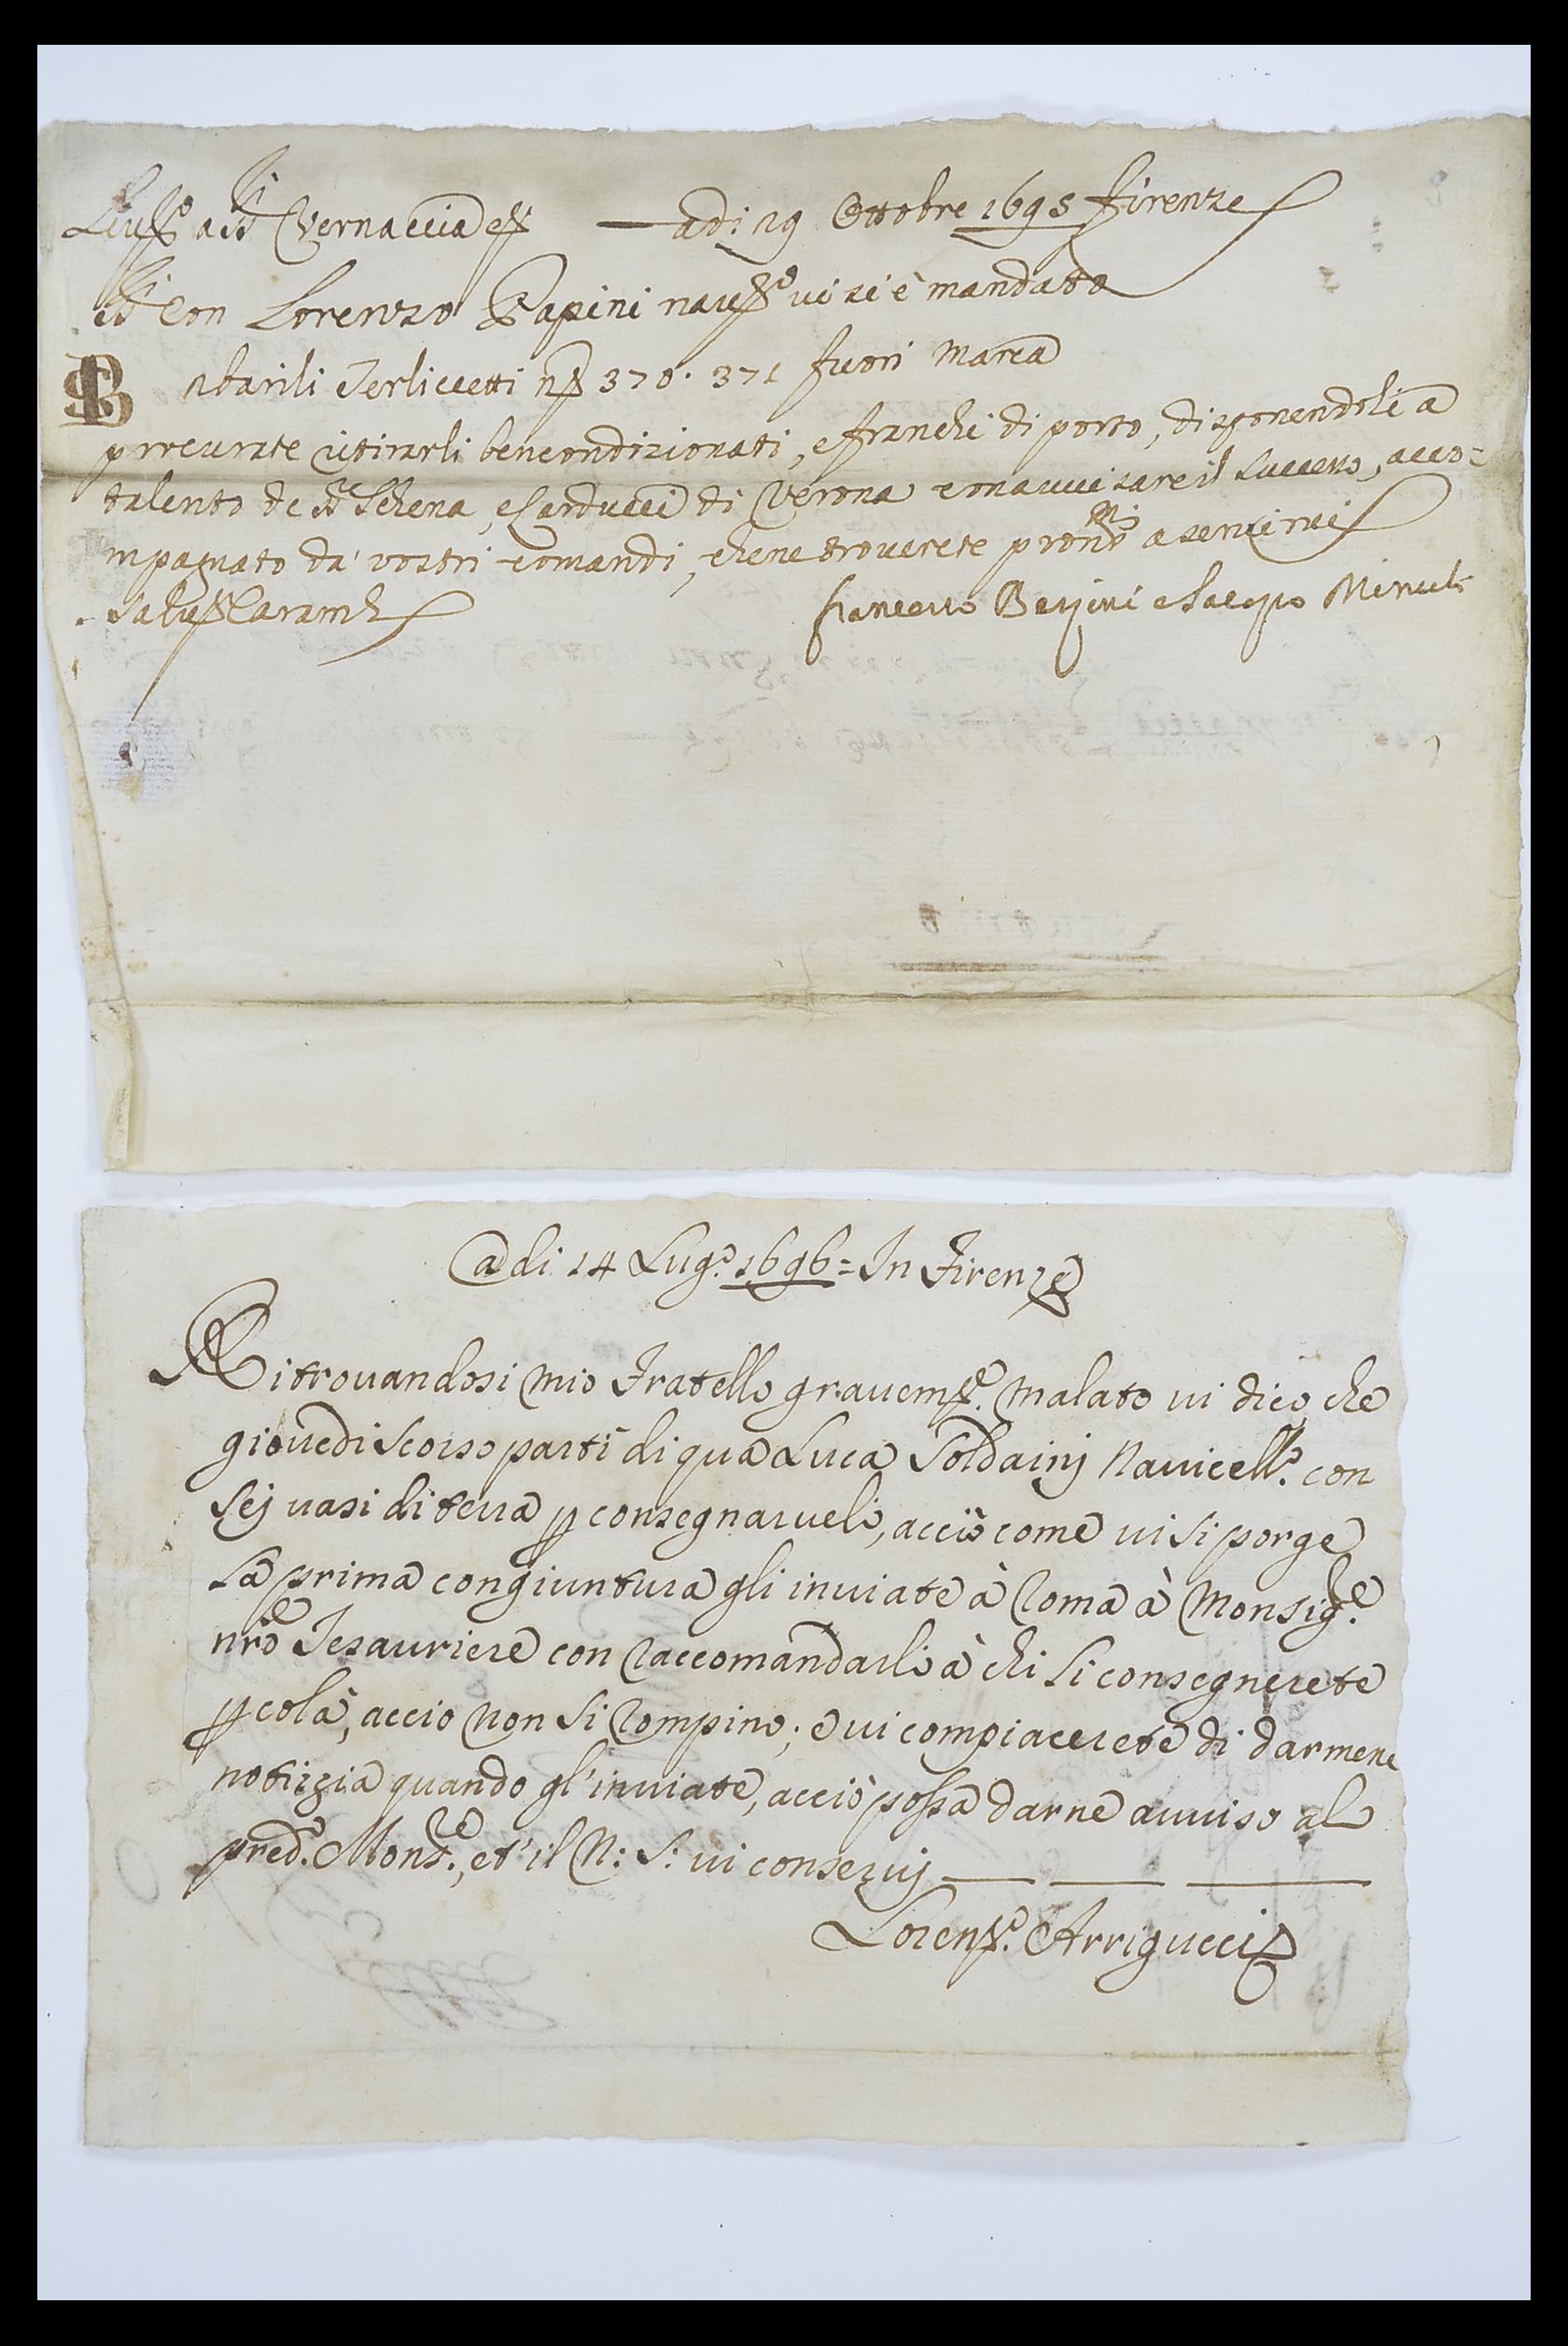 adi 29 Ottobre 1695 Firenze
Con Lorenzo Papini nau.º ui si è mandato
2 barili Terliccetti nº 370. 371 fuori marca
procurate ritirarli bencondizionati, e franchi di porto, disponendoli a
talento de SSri Schena, e Carducci di Verona con auuisare il successo, acco=
mpagnato da' vostri comandi, che ne trouerete pronti a seruirui
Franceco Berzini e Iacopo Minuti
Adi 14 Lug.º 1696 = In Firenze
Ritrouandosi mio Fratello grauem.te malato ui dico, che
giouedi scorso partì di qua Luca Soldainj Nauicell.º con
sej uasi di terra p consegnarueli, acciò come ui si porge
la prima congiuntura gli inuiate à Roma à Monsig.re
nrõ Tesauriere con raccomandarli à chi li consegnerete
p colà, accio non si rompino; e ui compiacerete di darmene
notizia quando gl'inuiate, acciò possa darne auuiso al
pred.º Mons.re, et' il N: S: ui conseruj
Lorenz.º Arrigucci